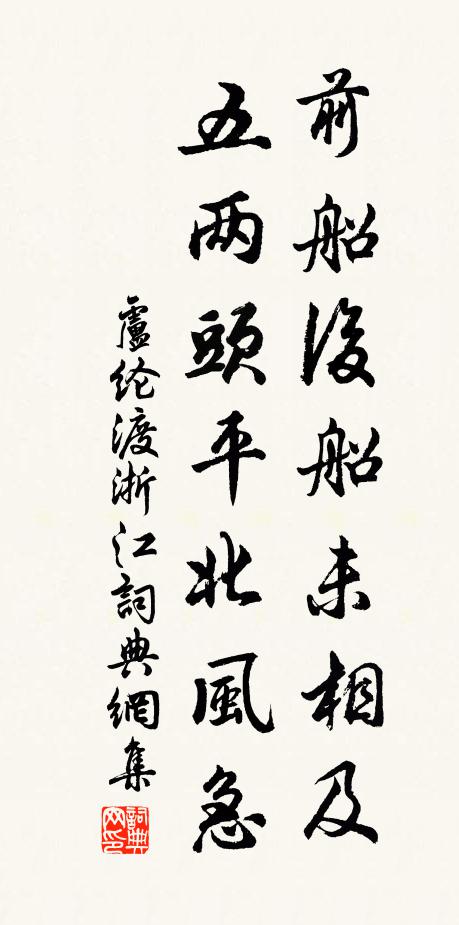 前船後船未相及
五两頭平北風急
盧纶渡浙江詞典網集
詞典网印